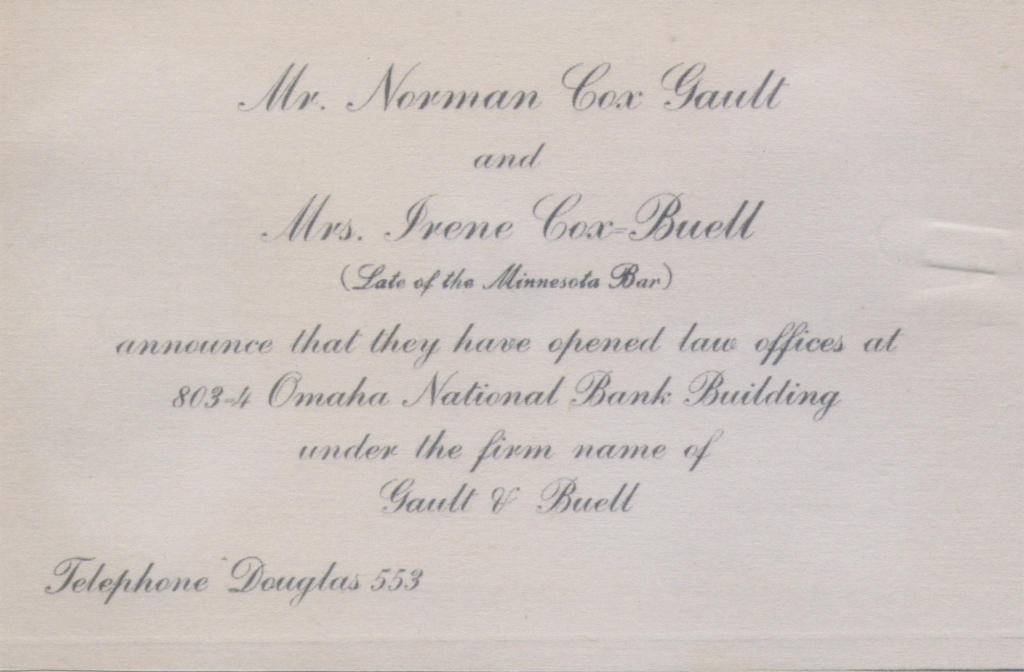 Mr. Norman Cox Gault
and
Mrs. Irene Cox-Buell
(Late of the Minnesota Bar)
announce that they have opened law offices at
803-4 Omaha National Bank Building
under the firm name of
Gault & Buell
Telephone Douglas 553